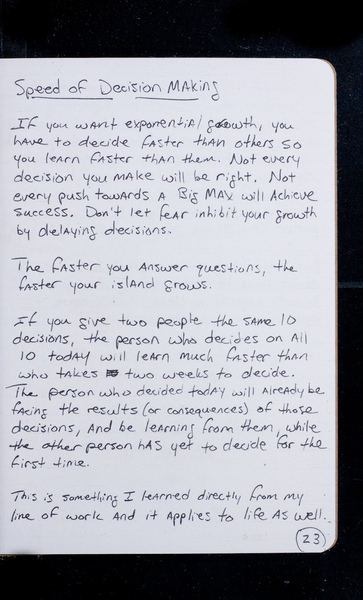 Speed of Decision Making
If you want exponential growth, you
have to decide faster than others so
you learn faster than them. Not every
decision you make will be right. Not
every push towards a Big MAX will achieve
success. Don't let fear inhibit your growth
by delaying decisions.
The faster you answer questions, the
faster your island grows.
If you give two people the same 10
decisions, the person who decides on all
10 today will learn much faster than
who takes two weeks to decide.
The person who decided today will already be
facing the results (or consequences) of those
decisions, and be learning from them, while
the other person has yet to decide for the
first time.
This is something I learned directly from my
line of work and it applies to life as well.
23